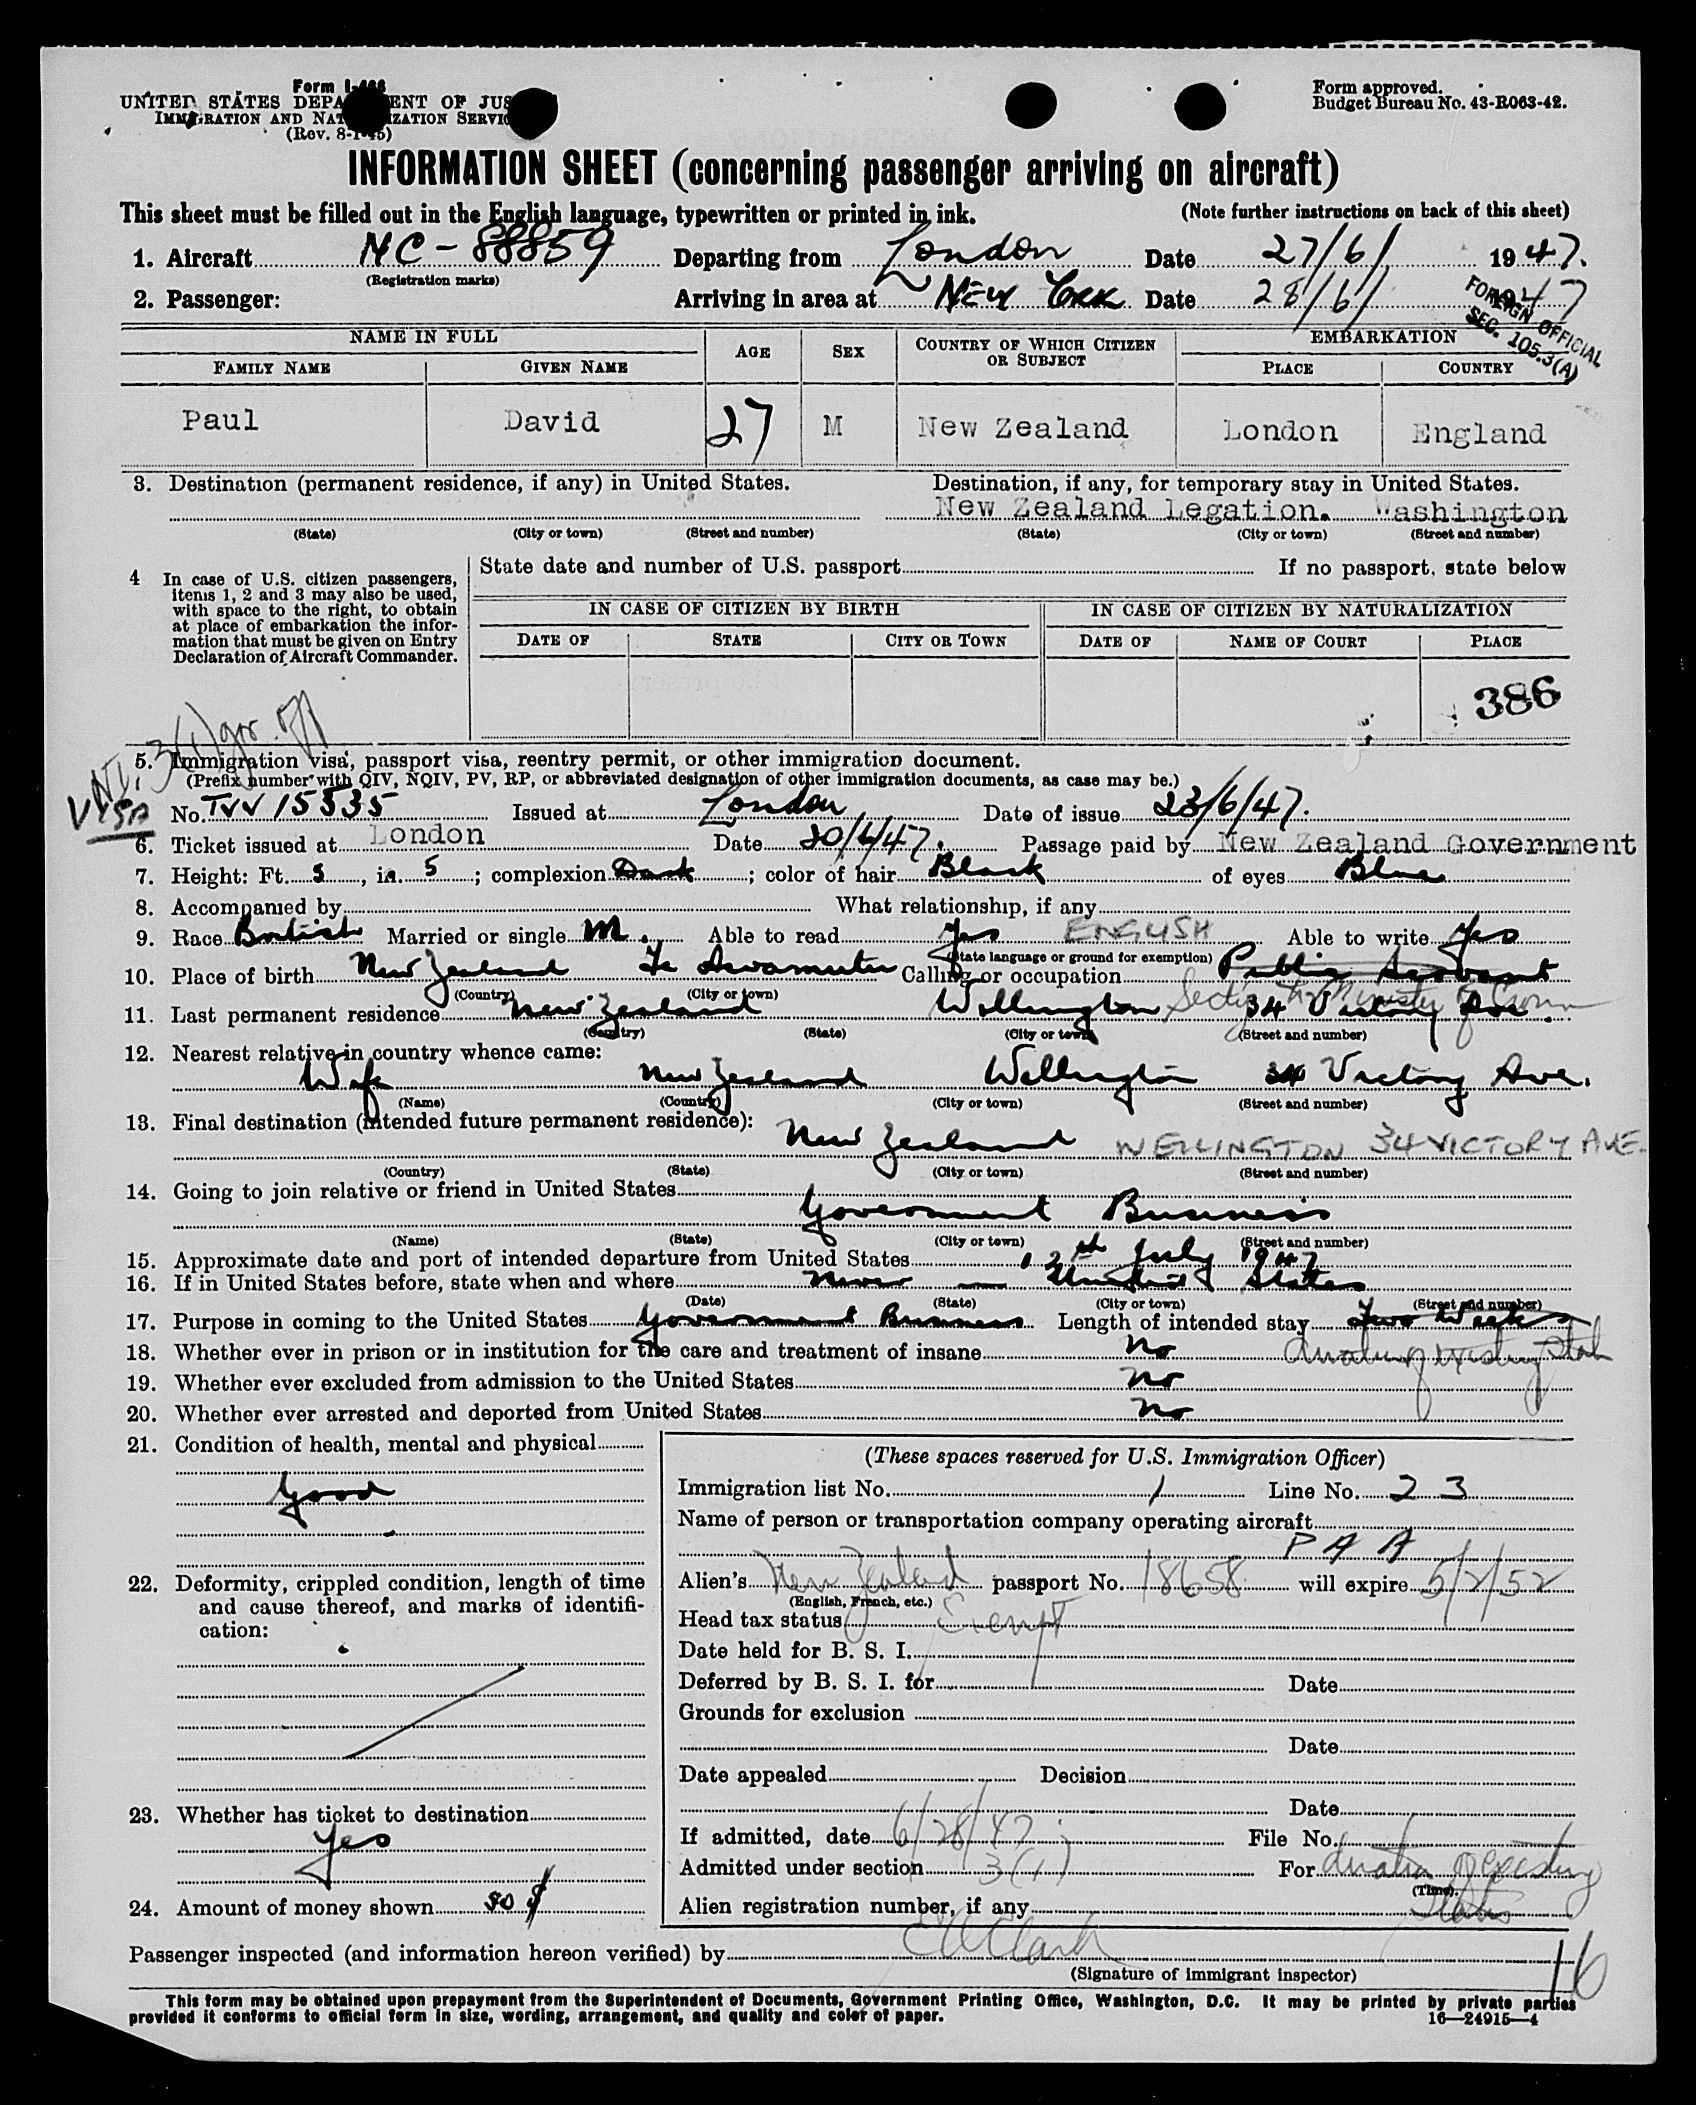 Form I-466
UNITED STATES DEPARTMENT OF JUSTICE
IMMIGRATION AND NATURALIZATION SERVICE
(Rev. 8-1-45)
Form approved.
Budget Bureau No. 43-R063-42.
INFORMATION SHEET (concerning passenger arriving on aircraft)
This sheet must be filled out in the English language, typewritten or printed in ink. (Note further instructions on back of this sheet)
1. Aircraft NC-88859 Departing from London Date 27/6/ 1947.
(Registration marks)
2. Passenger: Arriving in area at NEW YORK Date 28/6/ 1947
FOREIGN OFFICIAL
SEC. 105.3(A)
NAME IN FULL AGE SEX COUNTRY OF WHICH CITIZEN OR SUBJECT EMBARKATION
FAMILY NAME GIVEN NAME PLACE COUNTRY
Paul David 27 M New Zealand London England
3. Destination (permanent residence, if any) in United States. Destination, if any, for temporary stay in United States.
New Zealand Legation. Washington
(State) (City or town) (Street and number) (State) (City or town) (Street and number)
4 In case of U.S. citizen passengers, items 1, 2 and 3 may also be used, with space to the right, to obtain at place of embarkation the information that must be given on Entry Declaration of Aircraft Commander.
State date and number of U.S. passport If no passport, state below
IN CASE OF CITIZEN BY BIRTH IN CASE OF CITIZEN BY NATURALIZATION
DATE OF STATE CITY OR TOWN DATE OF NAME OF COURT PLACE
386
3(1) gov. off
5. Immigration visa, passport visa, reentry permit, or other immigration document.
(Prefix number with QIV, NQIV, PV, RP, or abbreviated designation of other immigration documents, as case may be.)
VISA
No. TVV 15535 Issued at London Date of issue 23/6/47.
6. Ticket issued at London Date 20/6/47. Passage paid by New Zealand Government
7. Height: Ft. 5, in. 5; complexion Dark; color of hair Black of eyes Blue
8. Accompanied by What relationship, if any
9. Race British Married or single M. Able to read Yes ENGLISH Able to write Yes
(State language or ground for exemption)
10. Place of birth New Zealand Te Awamutu Calling or occupation Public Servant
(Country) (City or town) Secty to Minister of Crown
11. Last permanent residence New Zealand Wellington 34 Victory Ave.
(Country) (State) (City or town) (Street and number)
12. Nearest relative in country whence came:
Wife New Zealand Wellington 34 Victory Ave.
(Name) (Country) (City or town) (Street and number)
13. Final destination (intended future permanent residence):
New Zealand WELLINGTON 34 VICTORY AVE.
(Country) (State) (City or town) (Street and number)
14. Going to join relative or friend in United States
Government Business
(Name) (State) (City or town) (Street and number)
15. Approximate date and port of intended departure from United States 12th July 1947
16. If in United States before, state when and where Never — United States
(Date) (State) (City or town) (Street and number)
17. Purpose in coming to the United States Government Business Length of intended stay Two Weeks
18. Whether ever in prison or in institution for the care and treatment of insane No
19. Whether ever excluded from admission to the United States No
20. Whether ever arrested and deported from United States No
21. Condition of health, mental and physical
Good
22. Deformity, crippled condition, length of time and cause thereof, and marks of identification:
23. Whether has ticket to destination
Yes
24. Amount of money shown 80 $
(These spaces reserved for U.S. Immigration Officer)
Immigration list No. 1 Line No. 23
Name of person or transportation company operating aircraft
P A A
Alien's New Zealand passport No. 18658 will expire 5/2/52
(English, French, etc.)
Head tax status Exempt
Date held for B. S. I.
Deferred by B. S. I. for Date
Grounds for exclusion
Date
Date appealed Decision
Date
If admitted, date 6/28/47 File No.
Admitted under section 3(1) For duration of existing
(Time). Status
Alien registration number, if any
Passenger inspected (and information hereon verified) by
(Signature of immigrant inspector)
16
This form may be obtained upon prepayment from the Superintendent of Documents, Government Printing Office, Washington, D.C. It may be printed by private parties
provided it conforms to official form in size, wording, arrangement, and quality and color of paper. 16—24915—4